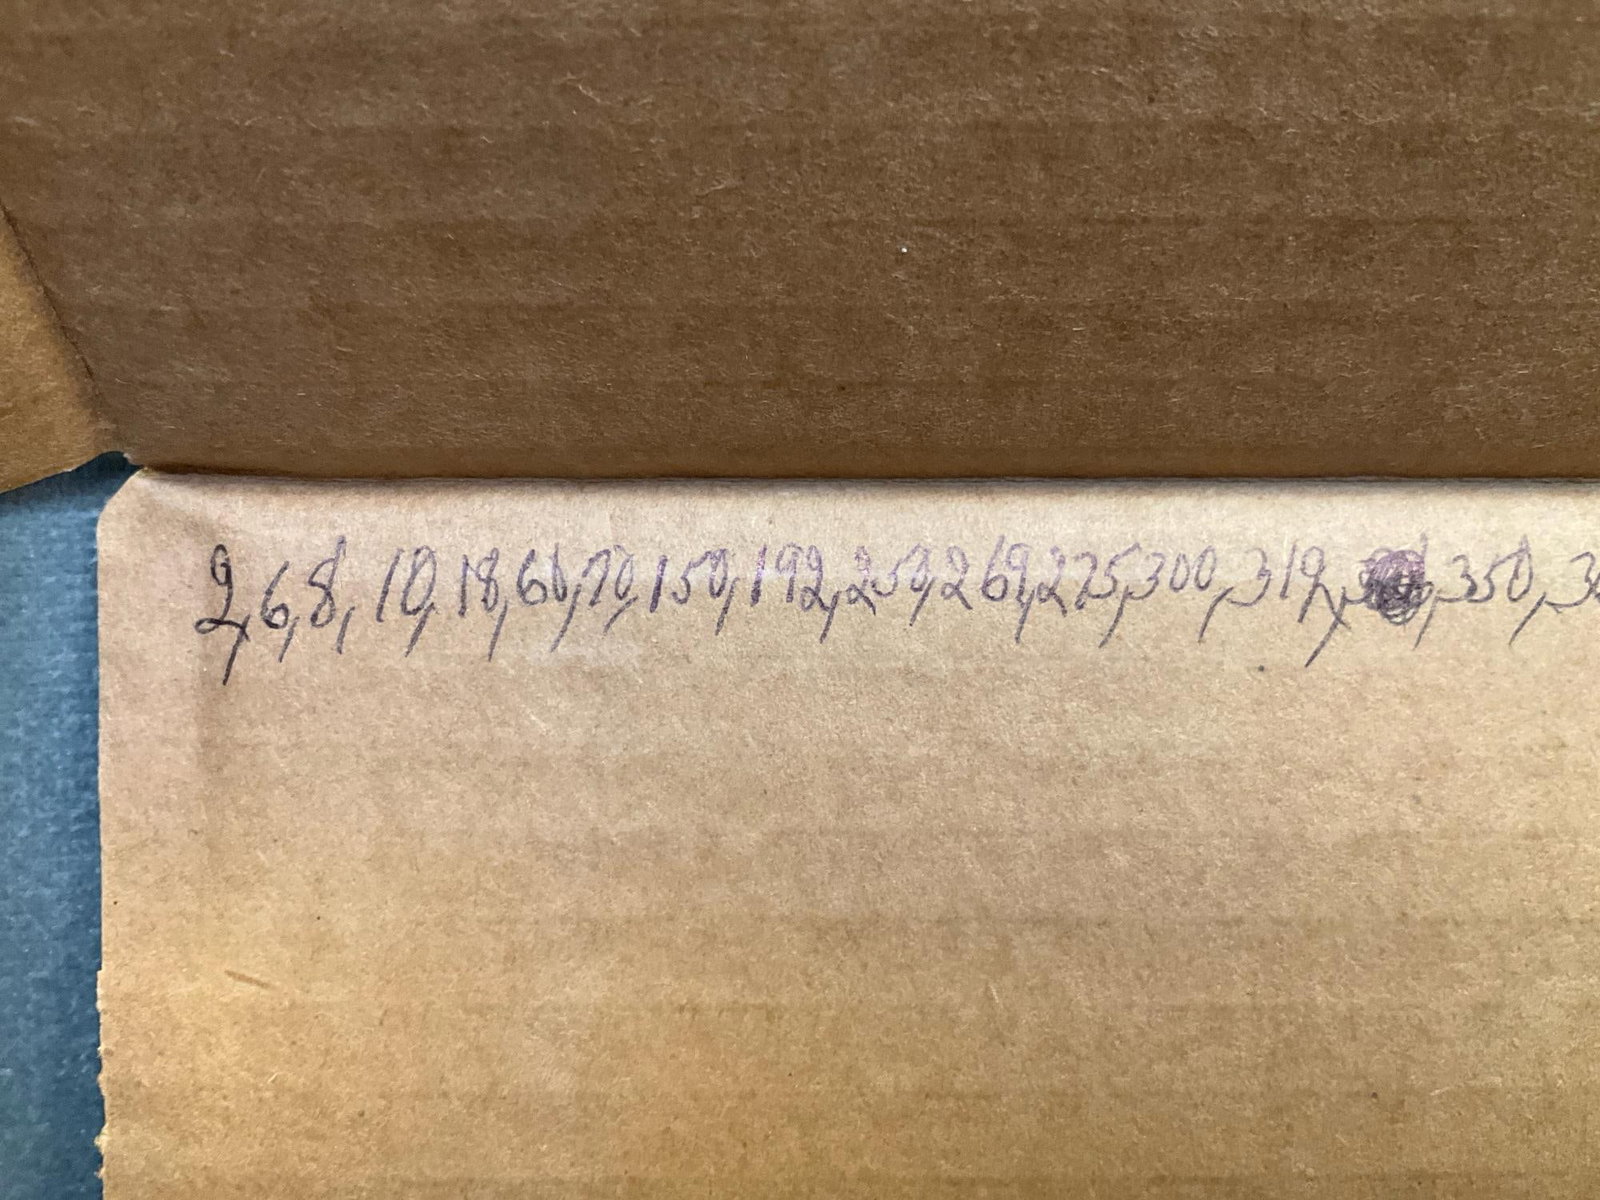 2, 6, 8, 10, 18, 60, 70, 150, 192, 250, 269, 275, 300, 319, 350,